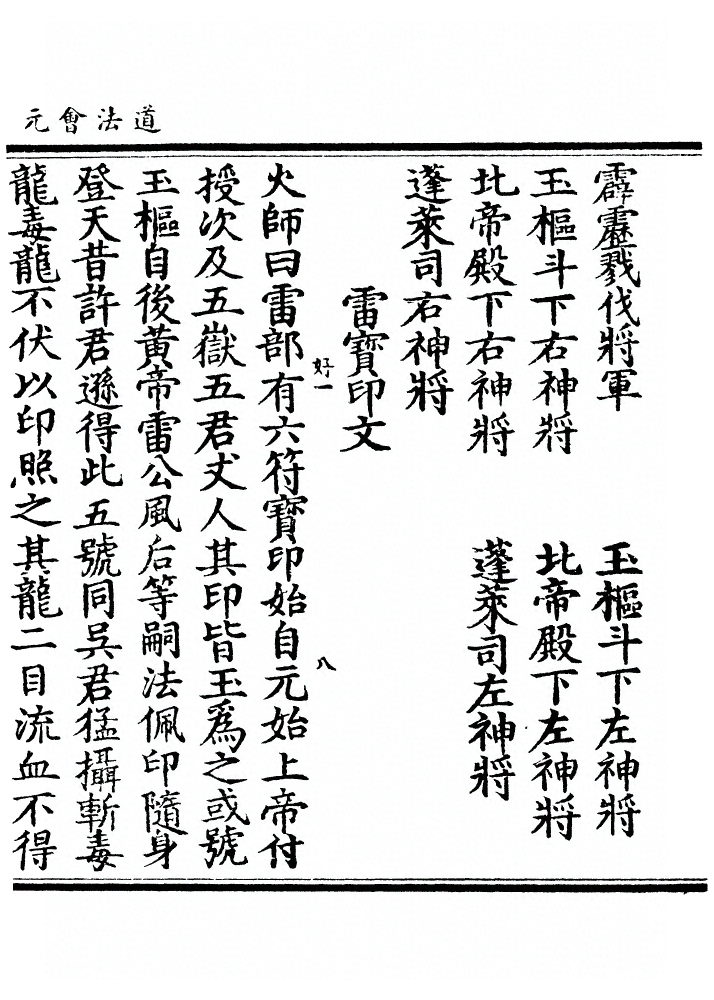 道法會元
霹靂戮伐將軍　玉樞斗下左神將
玉樞斗下右神將　北帝殿下左神將
北帝殿下右神將　蓬萊司左神將
蓬萊司右神將
雷寶印文
好一　八
火師曰雷部有六符寶印始自元始上帝付
授次及五嶽五君丈人其印皆玉爲之或號
玉樞自後黃帝雷公風后等嗣法佩印隨身
登天昔許君遜得此五號同吳君猛攝斬毒
龍毒龍不伏以印照之其龍二目流血不得